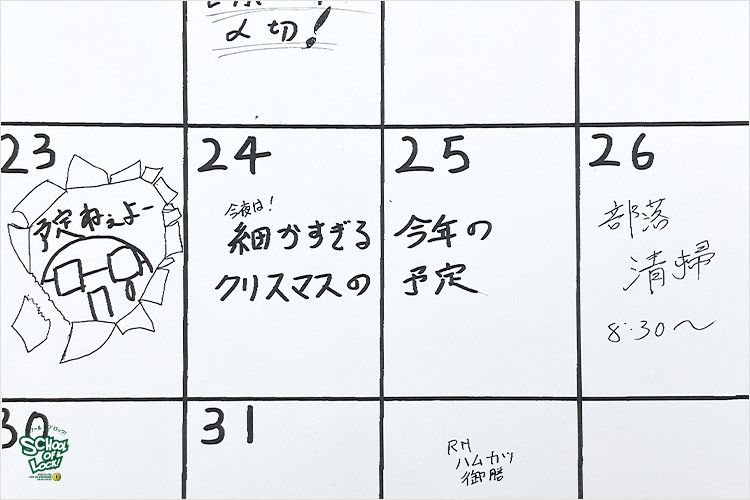 〆切!
23
24
25
26
予定ねぇよー
今夜は!
細かすぎる
クリスマスの
今年の
予定
部落
清掃
8:30〜
30
31
SCHOOL
OF
LOCK!
RN
ハムカツ
御膳